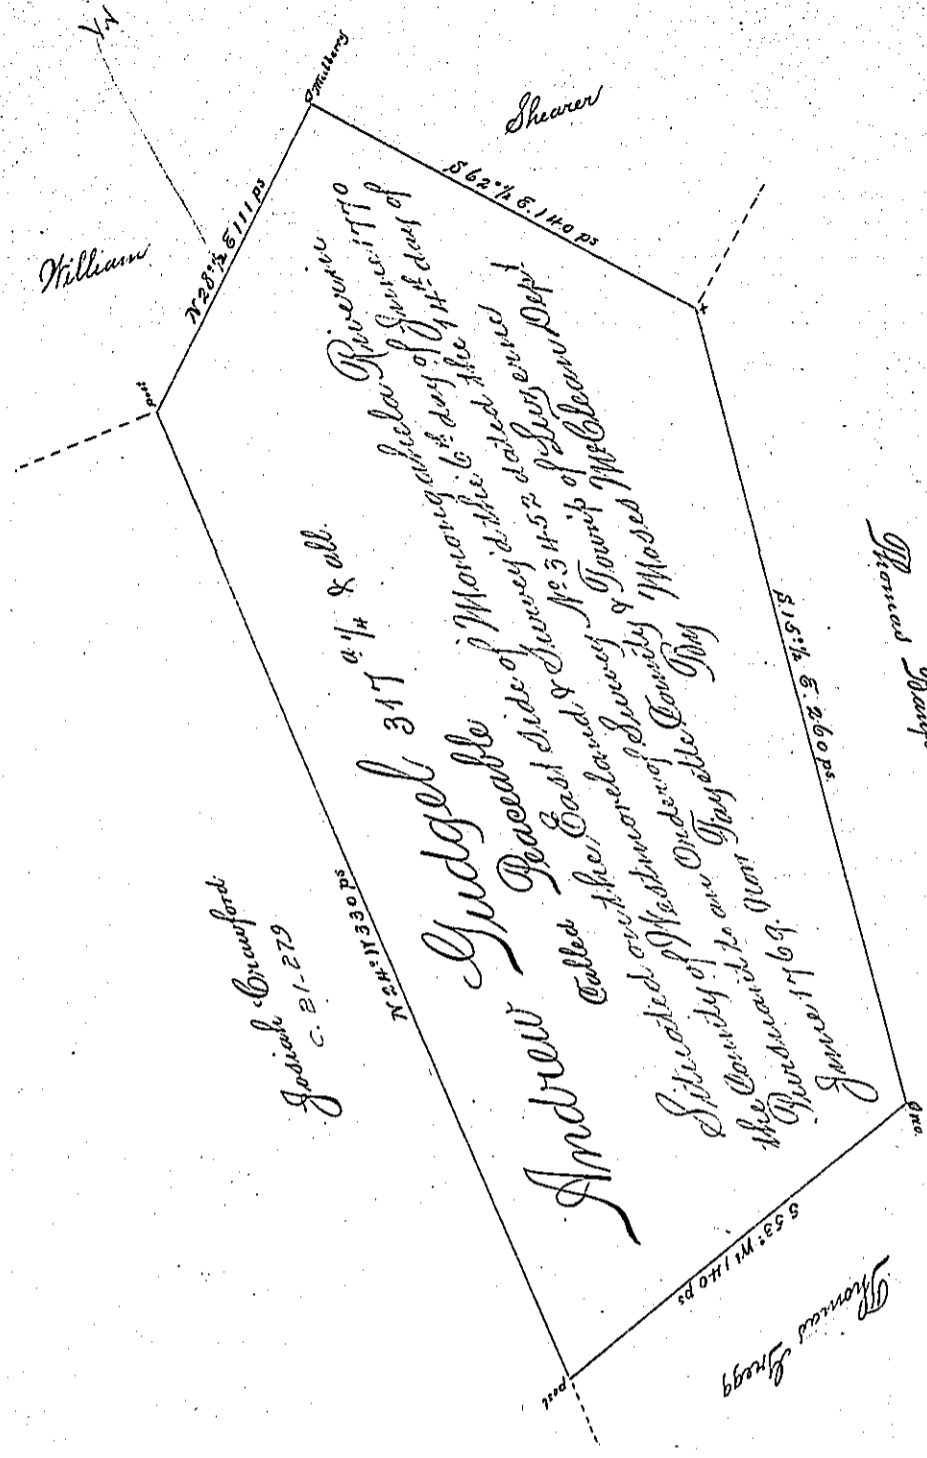 William
Shearer
Mulberry
post
N 28°½ E 111 ps
S 62°½ E. 140 ps
Josiah Crawford
C. 21-279
N 24° W 330 ps
Andrew Gudgel 317 a ¼ & all.
Called Peaceable
Situated on the East Side of Monongahela River in
the County of Westmoreland & Survey'd the 6th day of June 1770
Pursuant to an Order of Survey No 3452 dated the 14th day of
June 1769. Now Fayette County & Townip of Luzerne
By Moses McClean Dept
S 15°½ E. 260 ps
Thomas
S 53° W 140 ps
post
Thomas Gregg